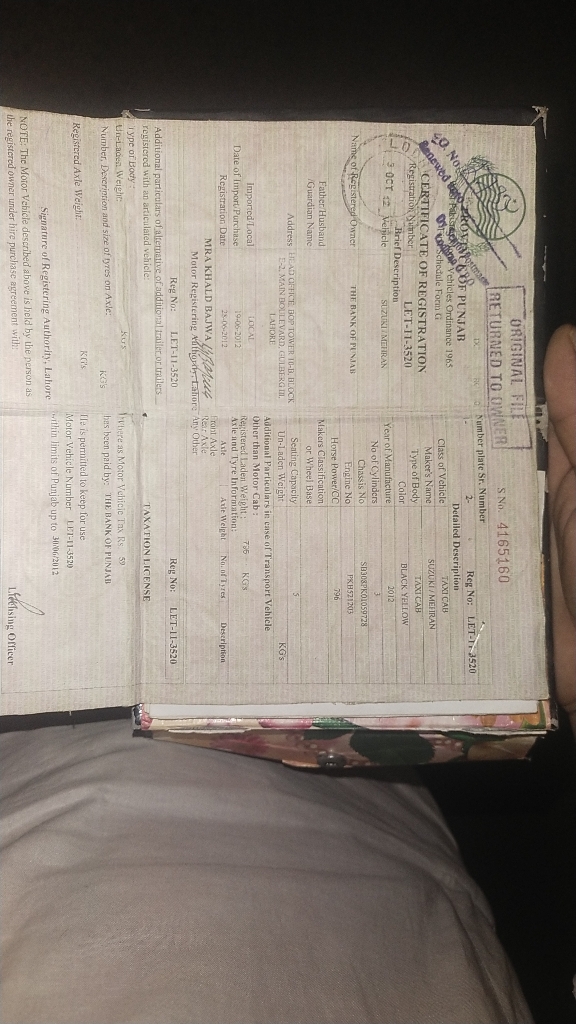 ORIGINAL FILE
RETURNED TO OWNER
PROVINCE OF PUNJAB
Vehicles Ordinance 1965
Schedule Form G
CERTIFICATE OF REGISTRATION
Registration Number LET-11-3520
Brief Description
Vehicle SUZUKI / MEHRAN
Name of Registered Owner THE BANK OF PUNJAB
Father/Husband
/Guardian Name
Address HEAD OFFICE, BOP TOWER 10-B, BLOCK
E-2, MAIN BOULEVARD, GULBERG III,
LAHORE
Imported/Local LOCAL
Date of Import/Purchase 19-06-2012
Registration Date 28-06-2012
MRA KHALID BAJWA
Motor Registering Authority, Lahore
Reg No: LET-11-3520
Additional particulars of alternative of additional trailer or trailers
registered with an articulated vehicle:
Type of Body:
Un-Laden Weight: KG's
Number, Description and size of tyres on Axle: KG's
Registered Axle Weight: KG's
Signature of Registering Authority, Lahore
NOTE: The Motor Vehicle described above is held by the person as
the registered owner under hire purchase agreement with:
S No. 4165160
Number plate Sr. Number
2- Reg No: LET-11-3520
Detailed Description
Class of Vehicle TAXI CAB
Maker's Name SUZUKI / MEHRAN
Type of Body TAXI CAB
Color BLACK YELLOW
Year of Manufacture 2012
No of Cylinders 3
Chassis No
Engine No
Horse Power/CC 796
Makers Classification
or Wheel Base
Seating Capacity 5
Un-Laden Weight: KG's
Additional Particulars in case of Transport Vehicle
Other than Motor Cab :
Registered Laden Weight : 796 KG's
Axle and Tyre Information:
Axle Axle Weight No. of Tyres Description
Front Axle
Rear Axle
Any Other
Reg No: LET-11-3520
TAXATION LICENSE
Whereas Motor Vehicle Tax Rs 59
has been paid by: THE BANK OF PUNJAB
He is permitted to keep for use
Motor Vehicle Number LET-11-3520
within limits of Punjab up to 30/06/2012
Licensing Officer